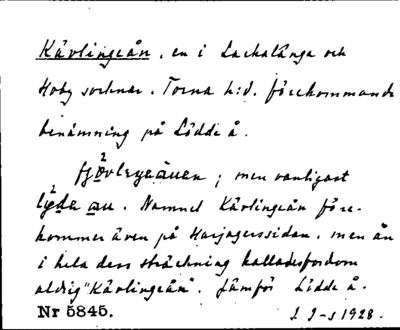 Kävlingeån, en i Lackalänga och
Hoby socknar. Torna h:d. förekommande
benämning på Lödde å.
; men vanligast
Namnet Kävlingeån före-
kommer även på Harjagerssidan, men ån
i hela dess sträckning kallades fordom
aldrig "Kävlingeån". Jämför Lödde å.
Nr 5845.
1928.